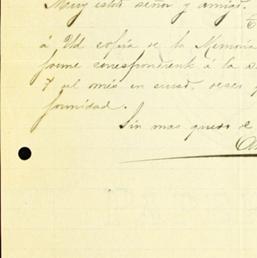 Muy esto señor y amigo.
á Ud copia de la Memoria
forme correspondiente á la s
y al mes en curso,
formidad.
Sin mas quedo de